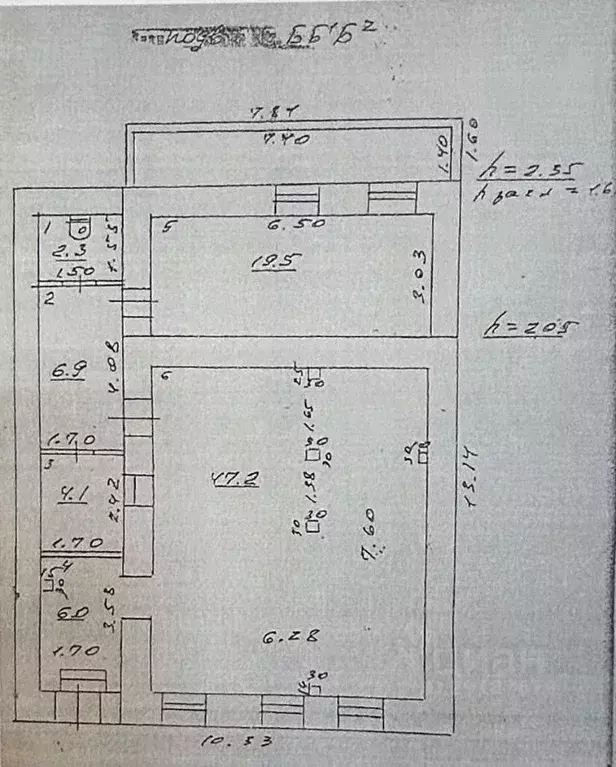 ББ₁Б₂
7.84
7.40
1.40
1.60
h=2.35
h расп = 1.6
1
2.3
1.50
1.55
5
6.50
19.5
3.03
2
6.9
4.08
1.70
h=2.05
6
25
30
1.65
30
30
1.38
30
30
47.2
7.60
13.14
3
4.1
2.42
1.70
4
15
30
6.0
3.58
1.70
6.28
30
10.33